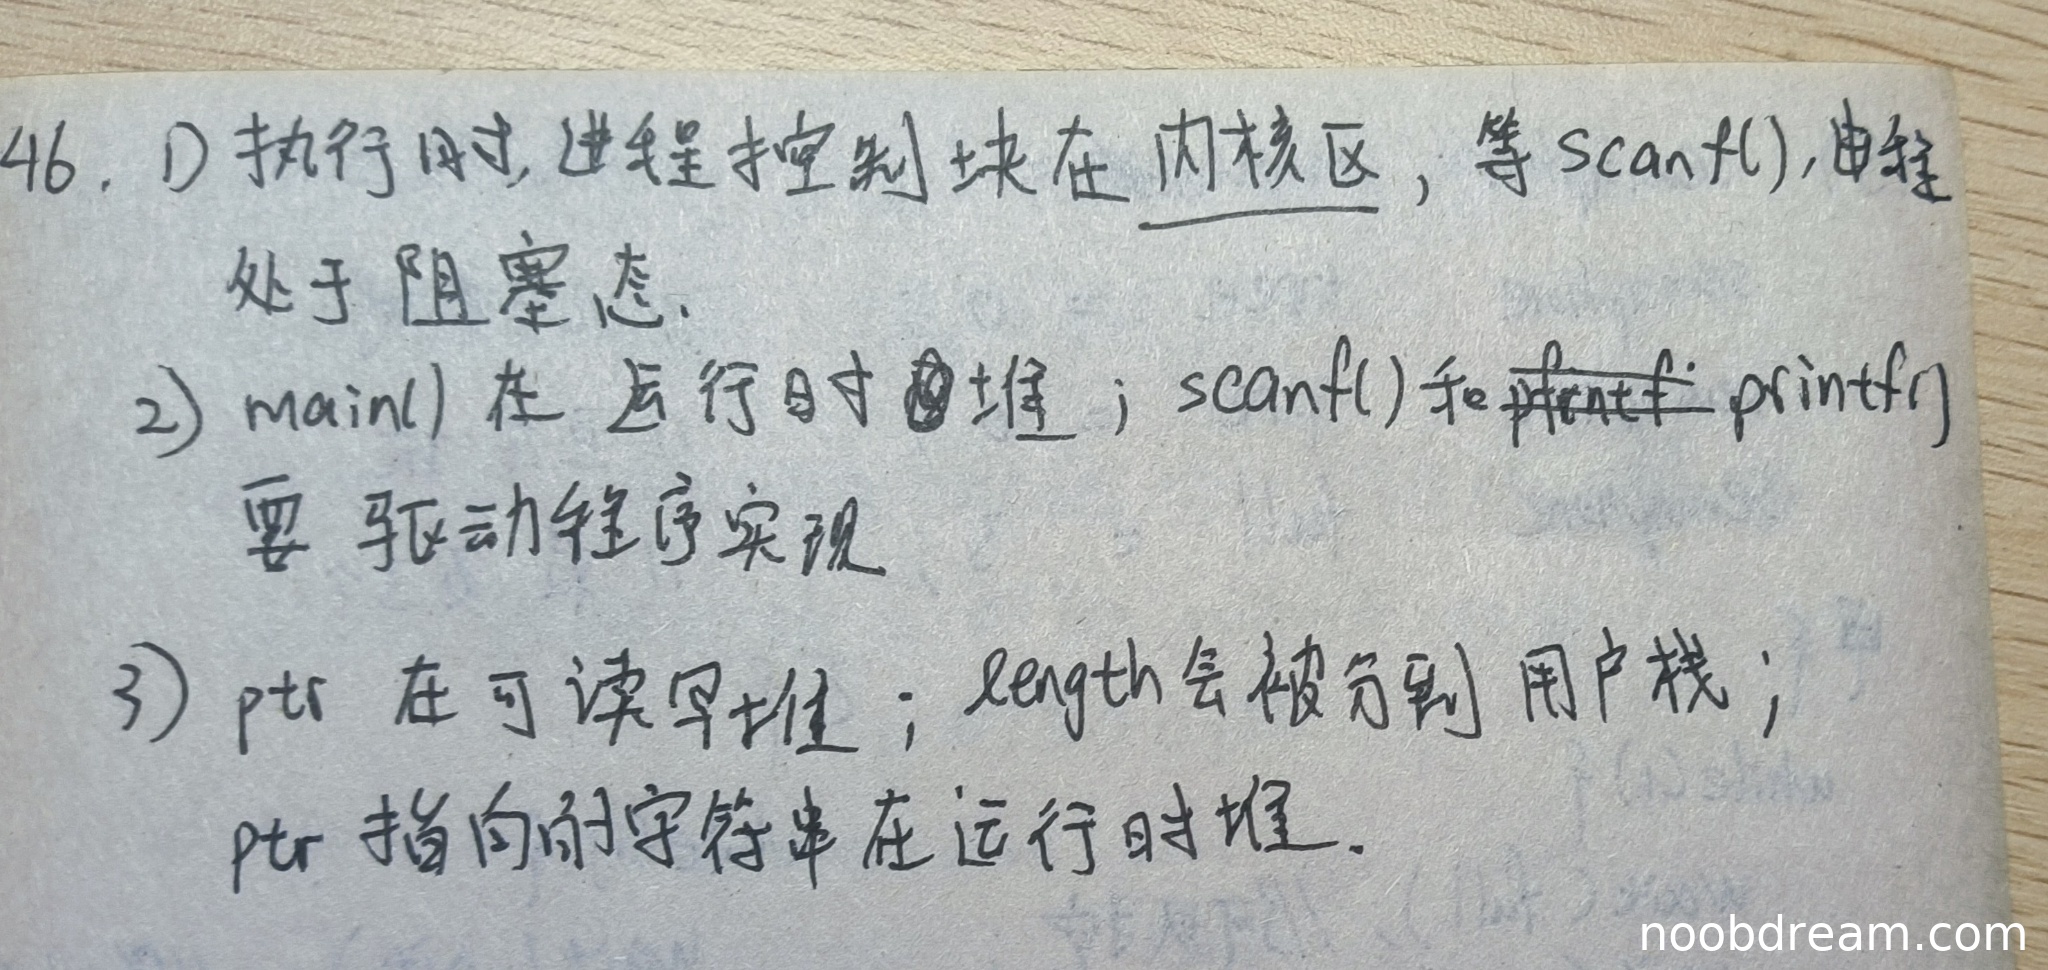 46. 1) 执行时,进程控制块在内核区,等scanf(),进程
处于阻塞态.
2) main()在运行时堆;scanf()和printf()
要驱动程序实现
3) ptr 在可读写堆;length会被分到用户栈;
ptr 指向的字符串在运行时堆.
noobdream.com